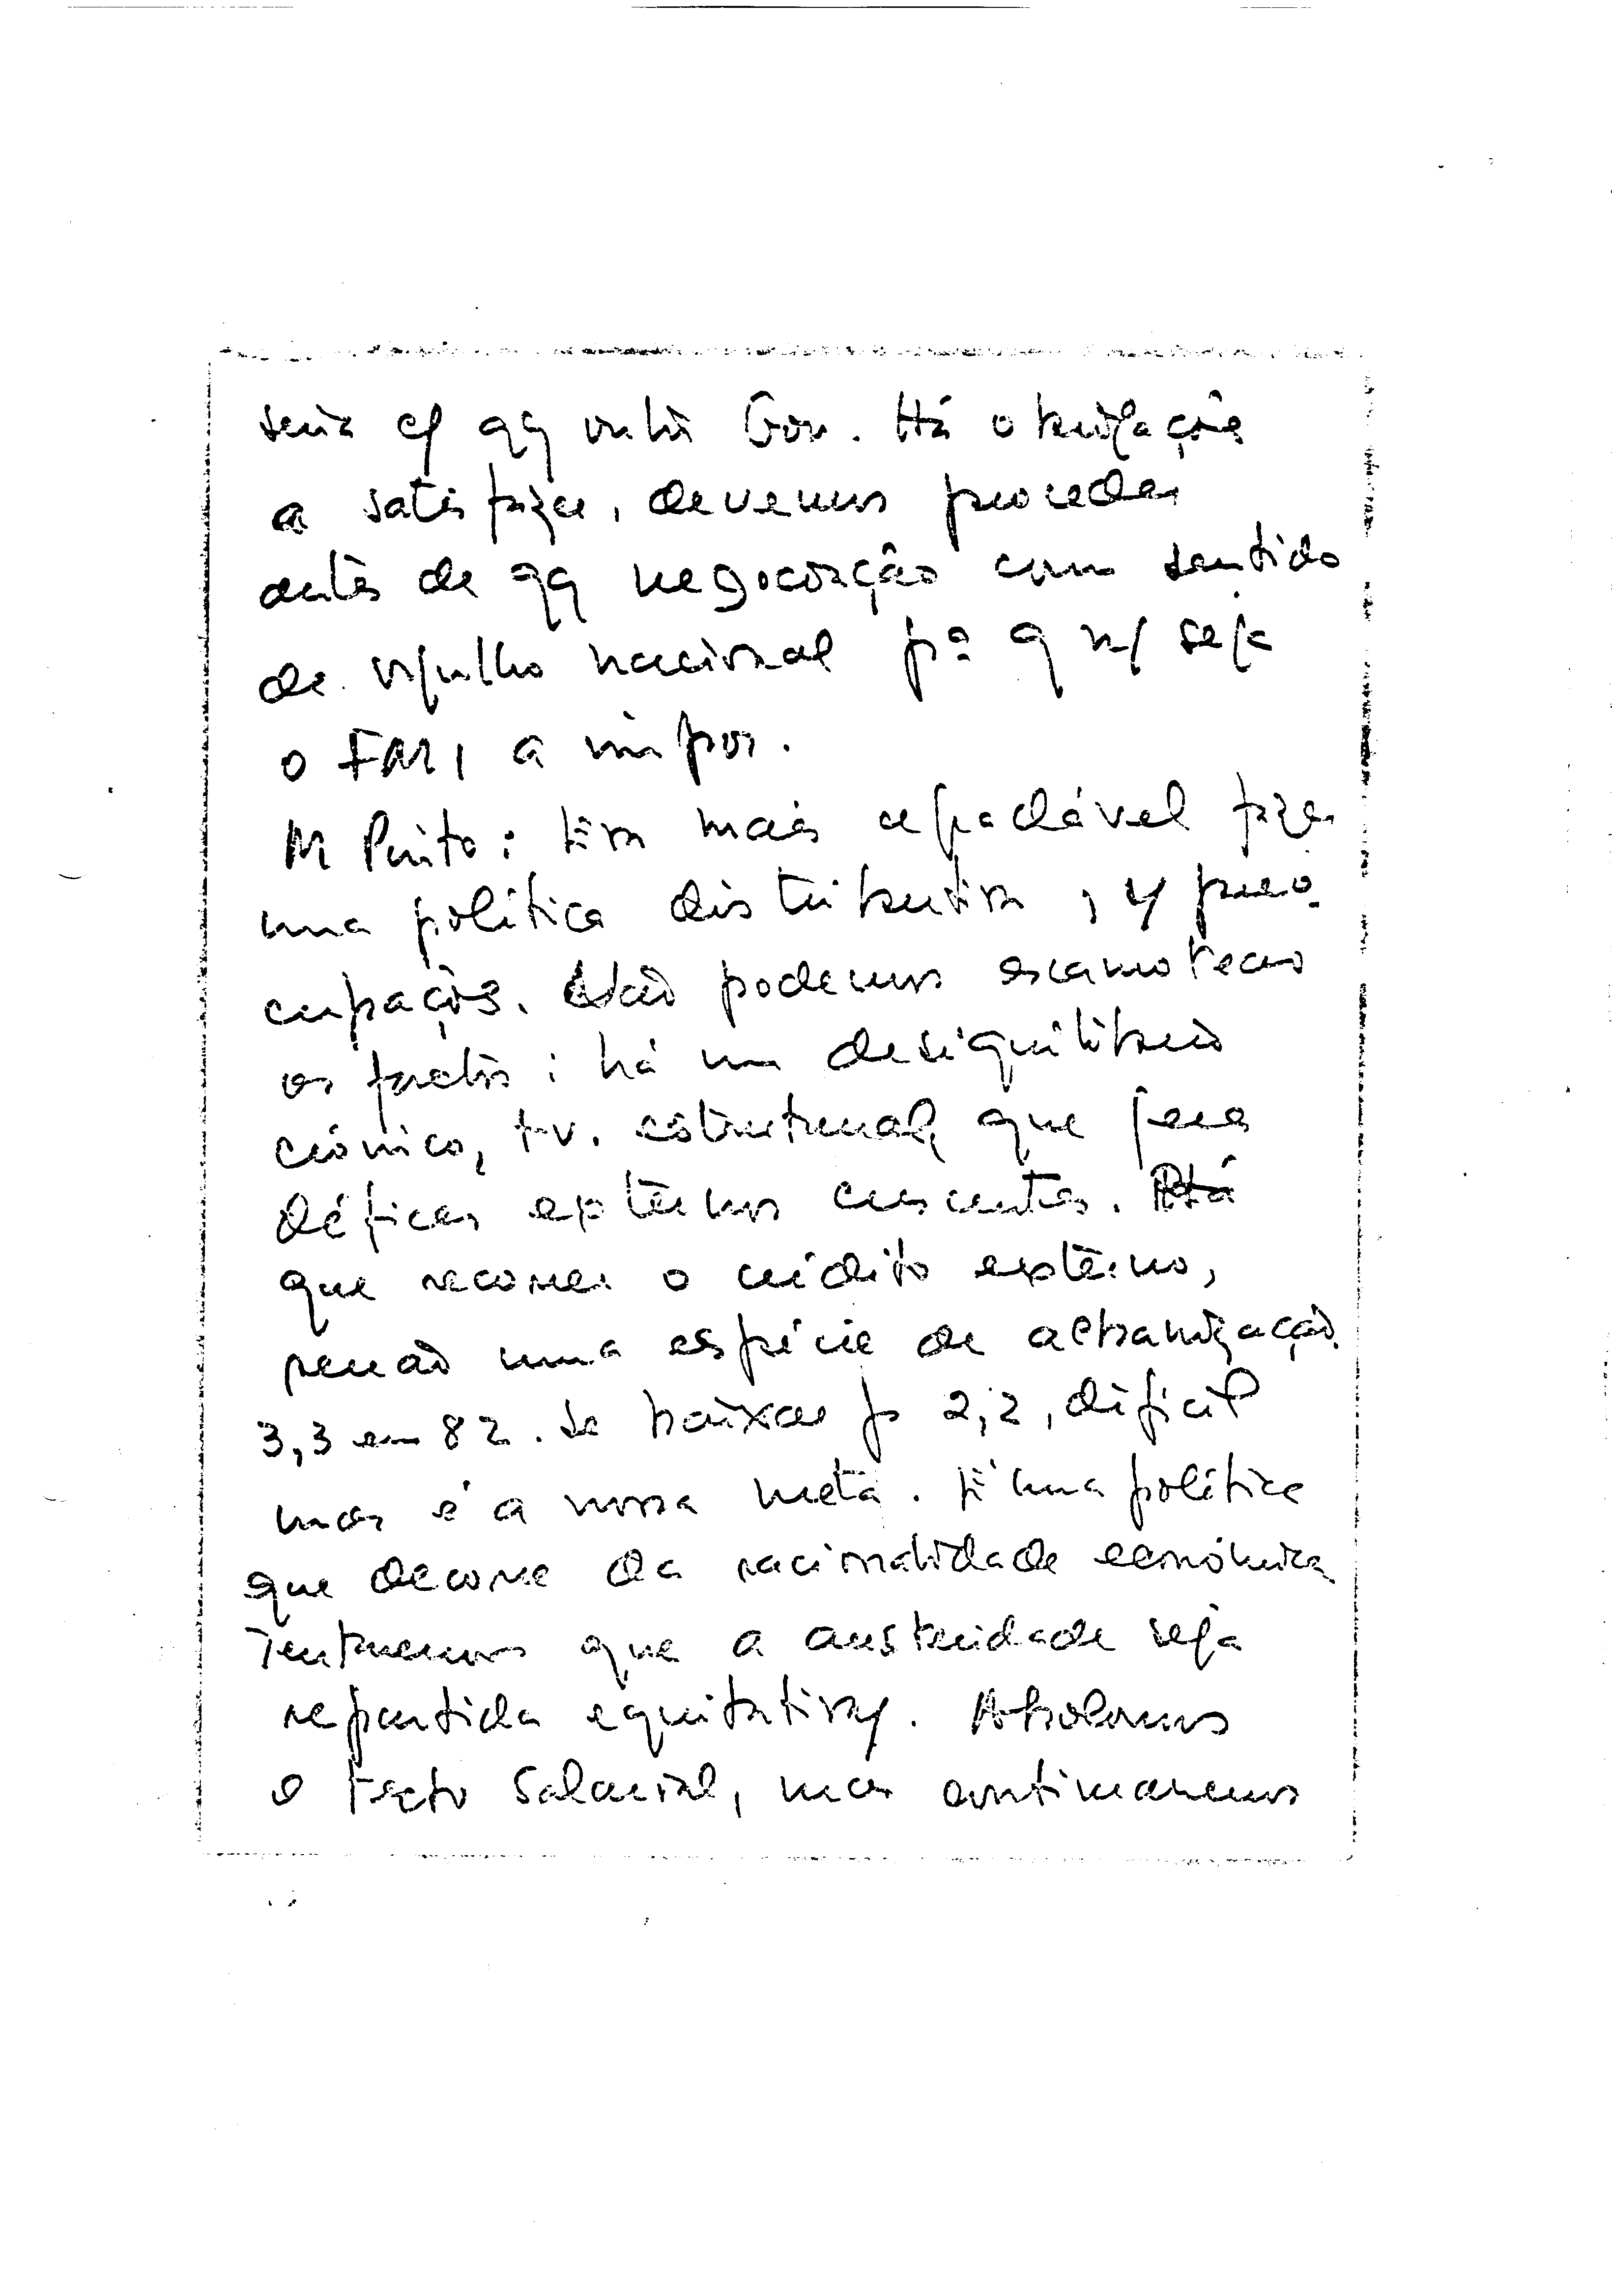 seria c/ qq outro Gov. Há obrigações
a satisfazer, devemos proceder
antes de qq negociação com sentido
de orgulho nacional pª q n/ seja
o FMI a impor.
M Pinto: Era mais agradável fazer
uma política distributiva, s/ preo-
cupações. Não podemos escamotear
os factos: há um desiquilíbrio
crónico, tv. estrutural, que gera
défices externos crescentes. Há
que recorrer o crédito externo,
senão uma espécie de albanização.
3,3 em 82. Se baixar p 2,2, difícil
mas é a nossa meta. É uma política
que decorre da racionalidade económica
Tentaremos que a austeridade seja
repartida equitativa/. Abolamos
o tecto salarial, mas continuaremos